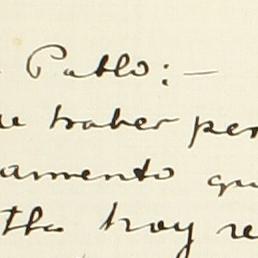 Pablo:—
haber per
amento qu
hoy re